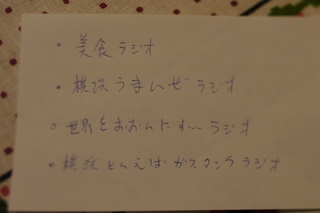 ・美食ラジオ
・横浜うまいぜラジオ
○世界をおおいにす〜ラジオ
・横浜といえばガスコンラジオ